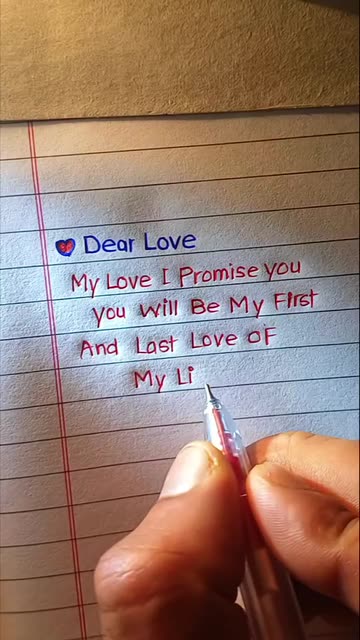 Dear Love
My Love I Promise you
you Will Be My First
And Last Love OF
My Li